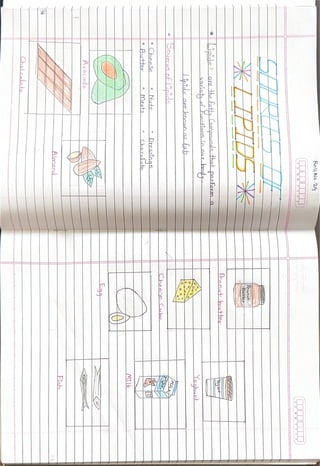 SOURCES OF
LIPIDS
• Lipids : are the fatty compounds that perform a
variety of functions in our body.
Lipids are known as fats
• Sources of Lipids
• Cheese • Nuts • Dressings
• Butter • Meats • Chocolate
Avocado
Almond
Chocolate
Peanut butter
Yoghurt
Cheese Cube
Milk
Egg
Fish